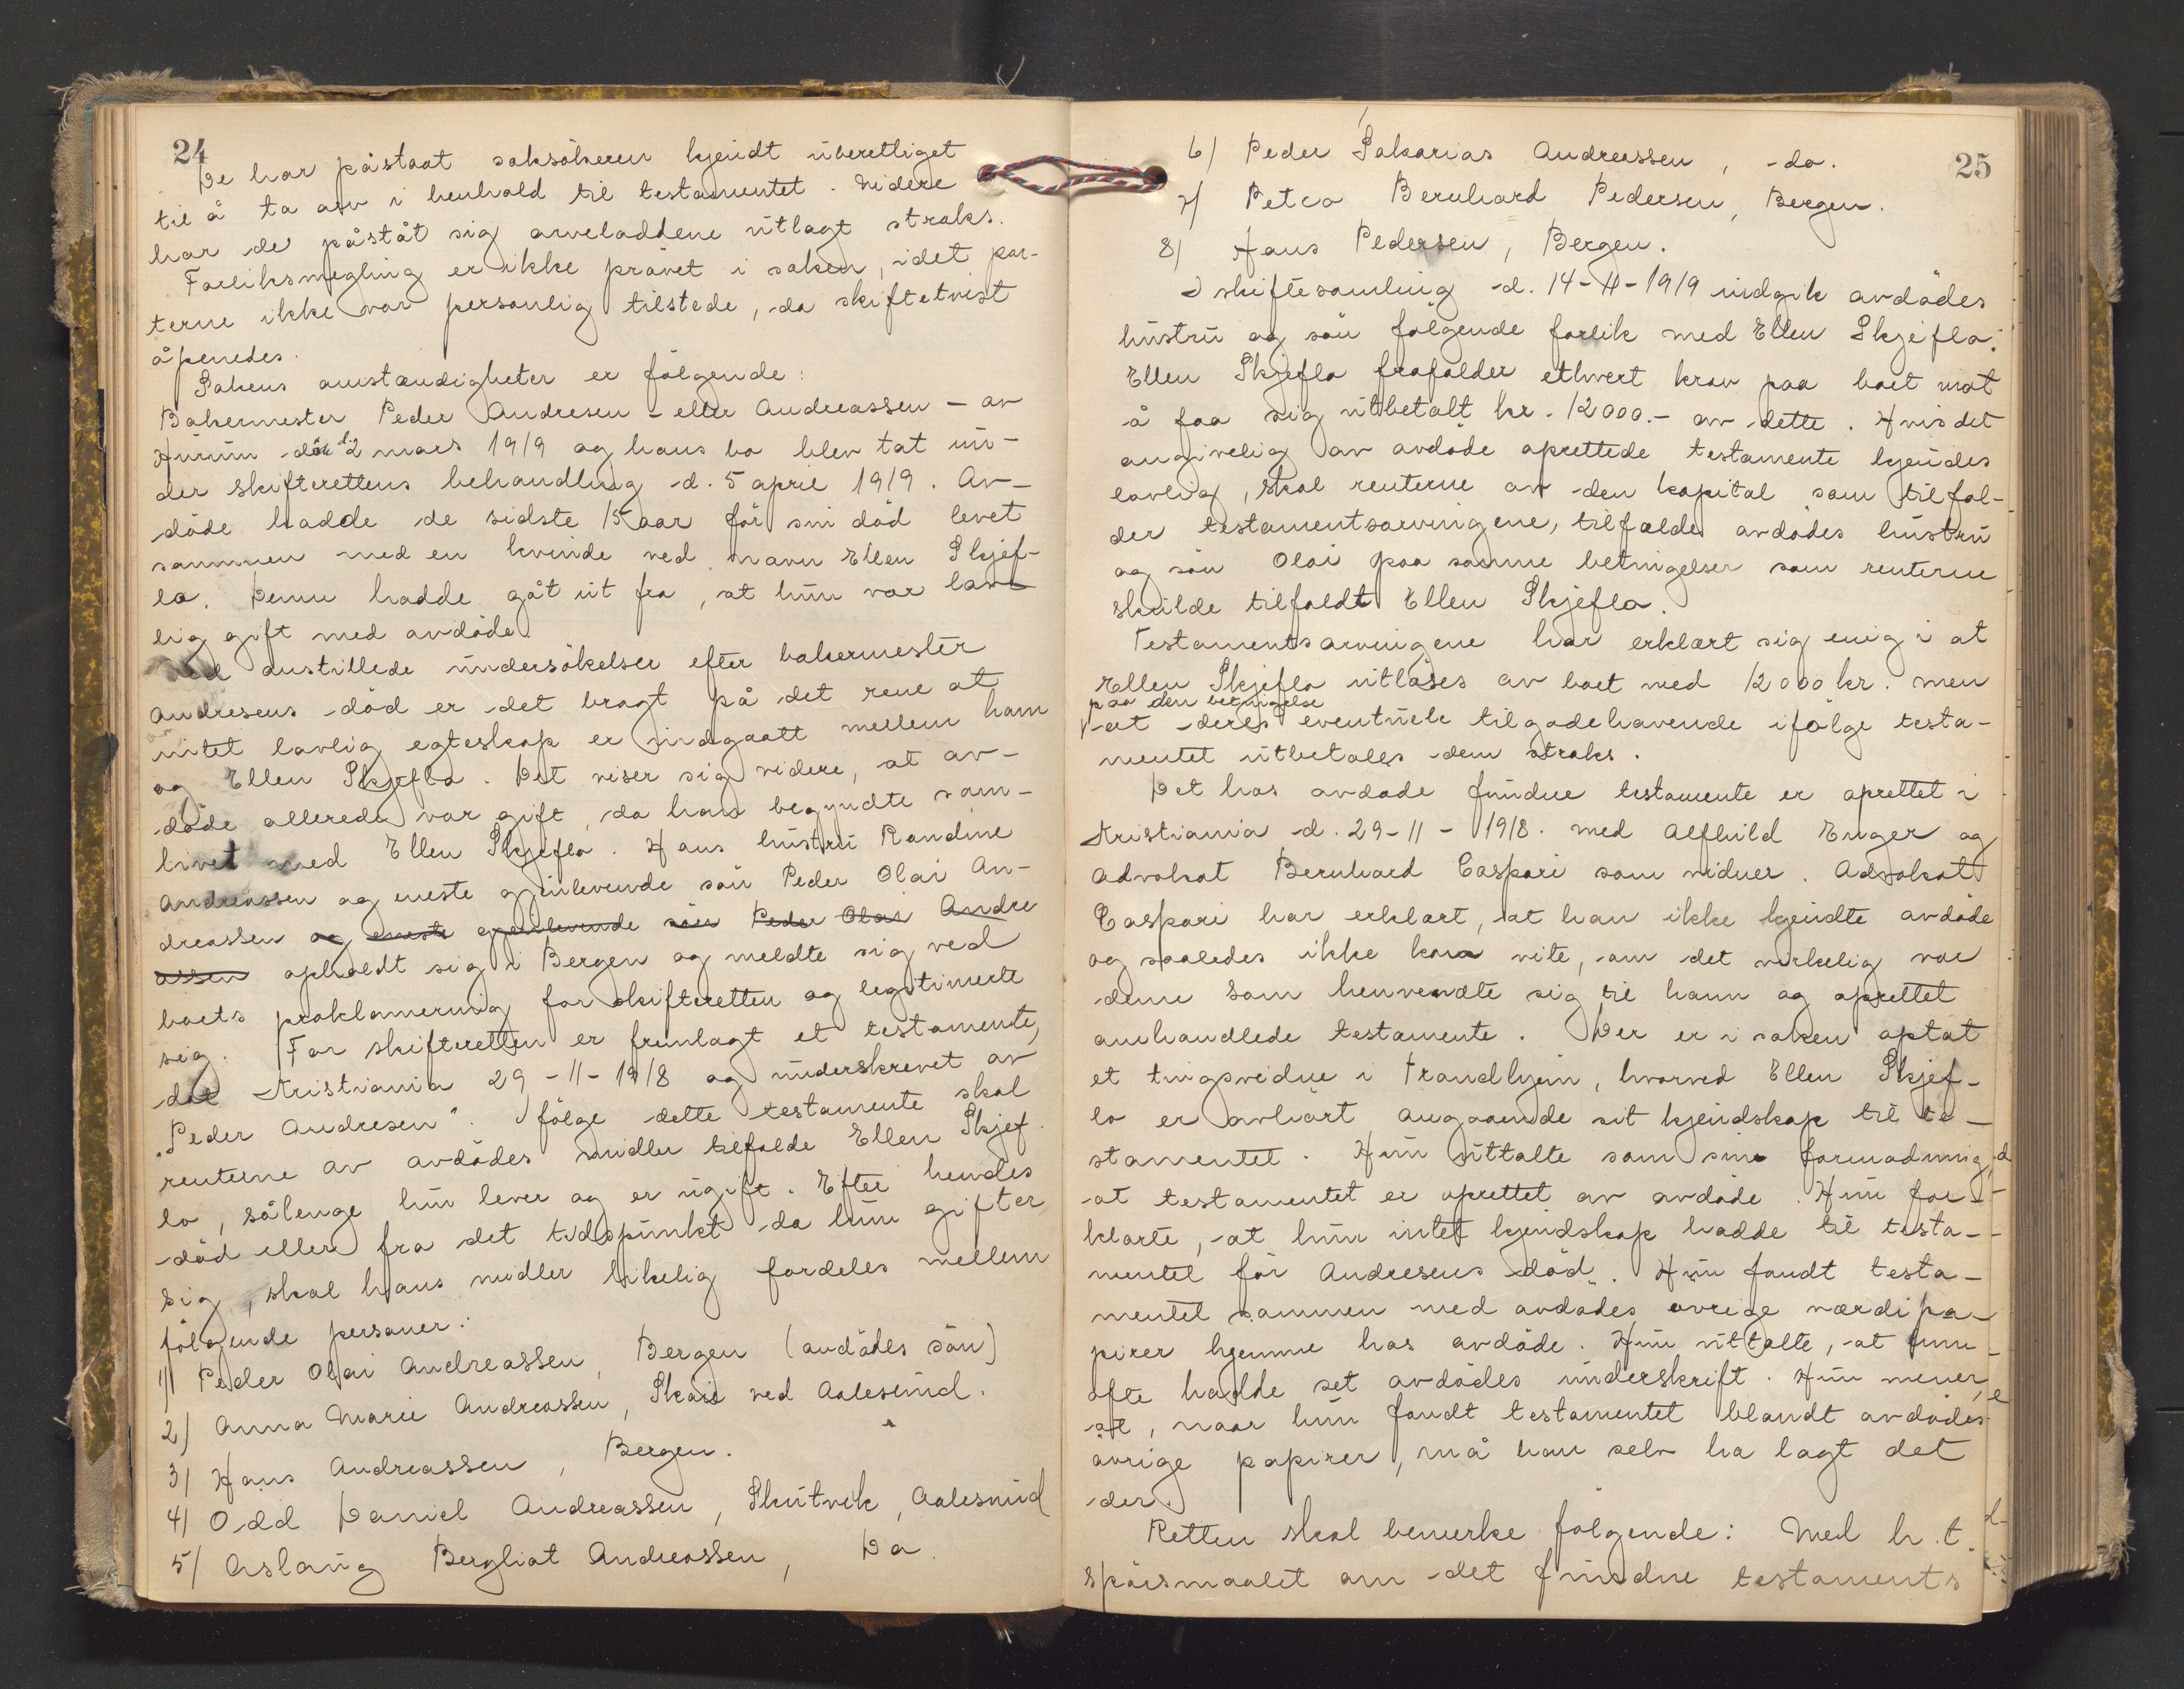 24
De har påstaat saksökeren kjendt uberettiget
til å ta arv i henhold til testamentet. Videre
har de påståt sig arveloddene utlagt straks.
Forliksmegling er ikke prövet i saken, idet par-
terne ikke var personlig tilstede, da skiftetvist
åpenedes.
Sakens omstændigheter er fölgende:
Bakermester Peder Andresen - eller Andreassen - av
Hurum döde d. 2 mars 1919 og hans bo blev tat un-
der skifterettens behandling d. 5 april 1919. Av-
döde hadde de sidste 15 aar för sin död levet
sammen med en kvinde ved navn Ellen Skjef-
lo. Denne hadde gåt ut fra, at hun var lov-
lig gift med avdöde.
Ved anstillede undersökelser efter bakermester
Andresens död er det bragt på det rene at
intet lovlig egteskap er indgaatt mellem ham
og Ellen Skjeflo. Det viser sig videre, at av-
döde allerede var gift, da han begyndte sam-
livet med Ellen Skjeflo. Hans hustru Randine
Andreassen og eneste gjenlevende sön Peder Olai An-
dreassen og eneste gjenlevende sön Peder Olai Andre
assen opholdt sig i Bergen og meldte sig ved
boets proklamering for skifteretten og legitimerte
sig. For skifteretten er fremlagt et testamente,
dat Kristiania 29-11-1918 og underskrevet av
"Peder Andresen". Ifölge dette testamente skal
renterne av avdödes midler tilfalde Ellen Skjef-
lo, sålenge hun lever og er ugift. Efter hendes
död eller fra det tidspunkt da hun gifter
sig, skal hans midler likelig fordeles mellem
fölgende personer:
1) Peder Olai Andreassen, Bergen (avdödes sön)
2) Anna Marie Andreassen, ved Aalesund.
3) Hans Andreassen, Bergen.
4) Odd Daniel Andreassen, Skutvik, Aalesund
5) Aslaug Bergliot Andreassen, Do.
25
6) Peder Sakarias Andreassen, -do.
7) Petra Bernhard Pedersen, Bergen.
8) Hans Pedersen, Bergen.
I skiftesamling d. 14-11-1919 indgik avdödes
hustru og sön fölgende forlik med Ellen Skjeflo:
Ellen Skjeflo frafalder ethvert krav paa boet mot
å faa sig utbetalt kr. 12000.- av dette. Hvis det
angivelig av avdöde oprettede testamente kjendes
lovlig, skal renterne av den kapital som tilfal-
der testamentsarvingene, tilfalde avdödes hustru
og sön Olai paa samme betingelser som renterne
skulde tilfaldt Ellen Skjeflo.
Testamentsarvingene har erklært sig enig i at
Ellen Skjeflo utlöses av boet med 12000 kr. men
paa den betingelse
at deres eventuele tilgodehavende ifölge testa-
mentet utbetales dem straks.
Det hos avdöde fundne testamente er oprettet i
Kristiania d. 29-11-1918. med Alfhild Enger og
Advokat Bernhard Caspari som vidner. Advokat
Caspari har erklært, at han ikke kjendte avdöde
og saaledes ikke kan vite, om det virkelig var
denne som henvendte sig til ham og oprettet
omhandlede testamente. Der er i saken optat
et tingsvidne i Trondhjem, hvorved Ellen Skjef-
lo er avhört angaaende sit kjendskap til te-
stamentet. Hun uttalte som sin formodning,
at testamentet er oprettet av avdöde. Hun for-
klarte, at hun intet kjendskap hadde til testa-
mentet för Andresens död. Hun fandt testa-
mentet sammen med avdödes övrige værdipa-
pirer hjemme hos avdöde. Hun uttalte, at hun
ofte hadde set avdödes underskrift. Hun mener,
at, naar hun fandt testamentet blandt avdödes
övrige papirer, må han selv ha lagt det
der.
Retten skal bemerke fölgende: Med h.t.
spörsmaalet om det fundne testaments